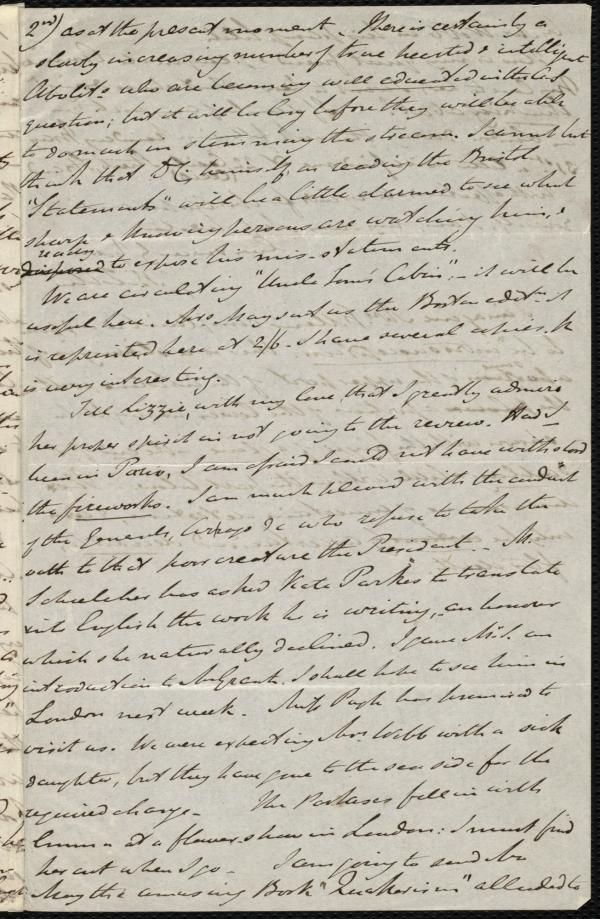 2nd) as at the present moment - There is certainly a
slowly increasing number of true hearted & intelligent
Abolits who are becoming well educated in this
question; but it will be long before they will be able
to do much in stemming the stream. I cannot but
think that D C himself, on reading the Bristol
"Statements" will be a little alarmed to see what
sharp & knowing persons are watching him, &
ready
disposed to expose his mis-statements.
We are circulating "Uncle Tom's Cabin", - it will be
useful here. Mrs May sent us the Boston edit: - it
is reprinted here at 2/6 - I have several copies. It
is very interesting.
Tell Lizzie, with my love, that I greatly admire
her proper spirit in not going to the review. Had I
been in Paris, I am afraid I could not have withstood
the fireworks. I am much pleased with the conduct
of the Generals, Arago &c who refuse to take the
oath to that poor creature the President. - M.
Schoelcher has asked Kate Parkes to translate
into English the work he is writing, - an honour
which she naturally declined. I gave M. S. an
introduction to Mr Grant. I shall hope to see him in
London next week. - Miss Pugh has promised to
visit us. We were expecting Mrs Webb with a sick
daughter, but they have gone to the sea side for the
required change - The Parkses fell in with
Emma at a flower-show in London: I must find
her out when I go - I am going to send Mr
May the amusing Book "Quakerism" alluded to